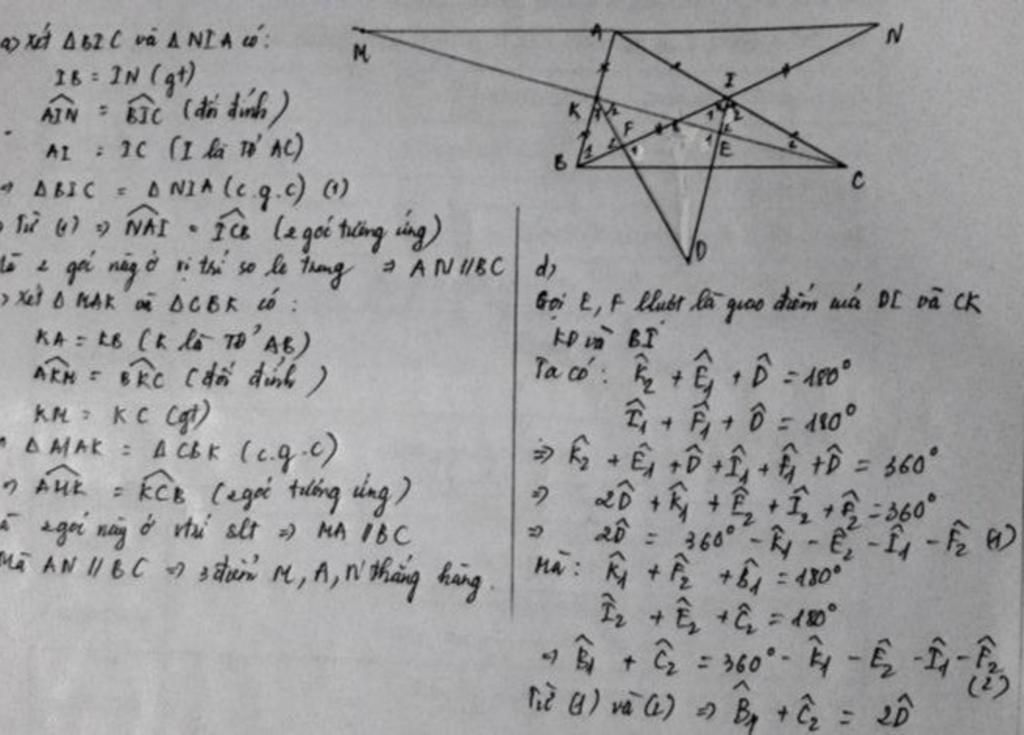 a) Xét ΔBIC và ΔNIA có:
IB = IN (gt)
AIN^ = BIC^ (đối đỉnh)
AI = IC (I là TĐ' AC)
⇒ ΔBIC = ΔNIA (c.g.c) (1)
Từ (1) ⇒ NAI^ = ICB^ (2 góc tương ứng)
Mà 2 góc này ở vị trí so le trong ⇒ AN//BC
) Xét ΔMAK và ΔCBK có:
KA = KB (K là TĐ' AB)
AKM^ = BKC^ (đối đỉnh)
KM = KC (gt)
ΔMAK = ΔCBK (c.g.c)
⇒ AMK^ = KCB^ (2 góc tương ứng)
2 góc này ở vtrí slt ⇒ MA//BC
Mà AN//BC ⇒ 3 điểm M, A, N thẳng hàng.
M A N
K 1 2 I 1 2
F 2 1 1 2 E
B 1 2 C
D
d)
Gọi E, F llượt là giao điểm của DI và CK
KD và BI
Ta có: K̂₂ + Ê₁ + D̂ = 180°
Î₁ + F̂₁ + D̂ = 180°
⇒ K̂₂ + Ê₁ + D̂ + Î₁ + F̂₁ + D̂ = 360°
⇒ 2D̂ + K̂₁ + Ê₂ + Î₂ + F̂₂ = 360°
⇒ 2D̂ = 360° - K̂₁ - Ê₂ - Î₁ - F̂₂ (1)
Mà: K̂₁ + F̂₂ + B̂₁ = 180°
Î₂ + Ê₂ + Ĉ₂ = 180°
⇒ B̂₁ + Ĉ₂ = 360° - K̂₁ - Ê₂ - Î₁ - F̂₂ (2)
Từ (1) và (2) ⇒ B̂₁ + Ĉ₂ = 2D̂